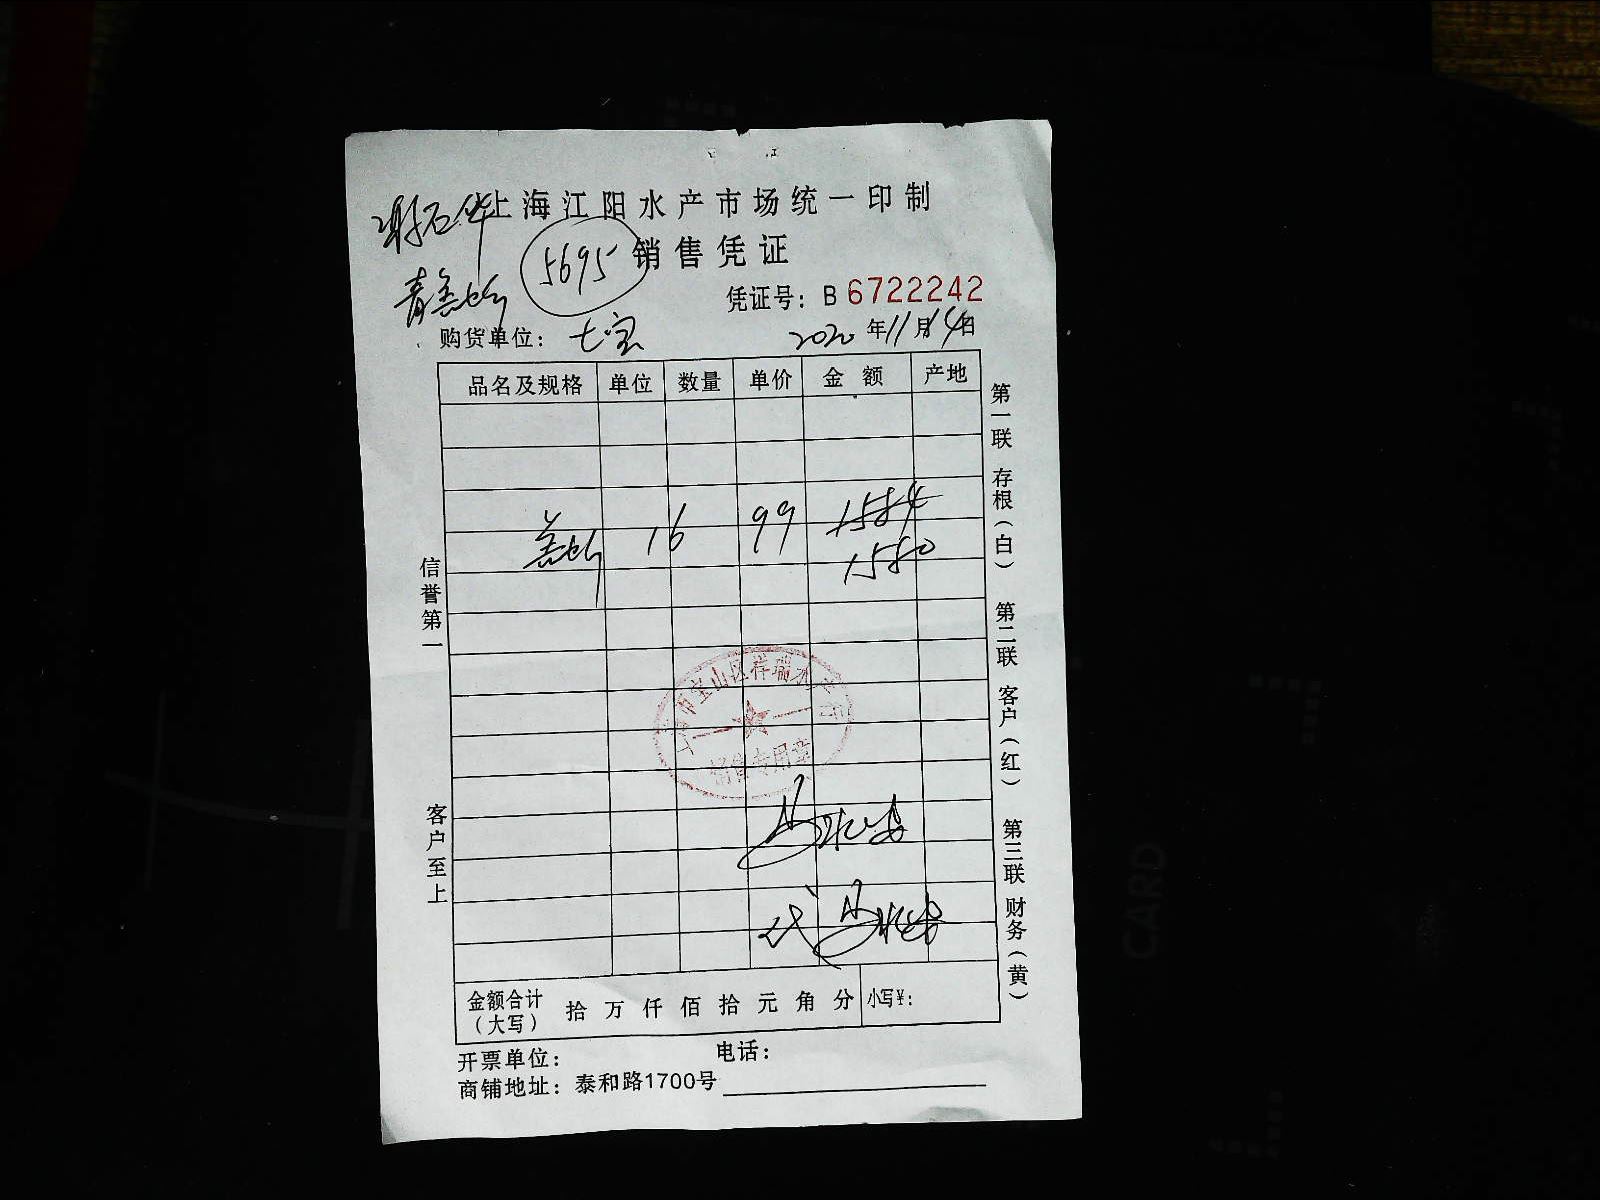 上海江阳水产市场统一印制
5695 销售凭证
凭证号：B 6722242
购货单位：七宝 2020年11月14日
品名及规格 单位 数量 单价 金额 产地
16 99 1584
1580
信誉第一
客户至上
第一联 存根（白） 第二联 客户（红） 第三联 财务（黄）
上海市宝山区祥瑞水产行
销售专用章
代
金额合计（大写） 拾 万 仟 佰 拾 元 角 分 小写¥：
开票单位： 电话：
商铺地址：泰和路1700号